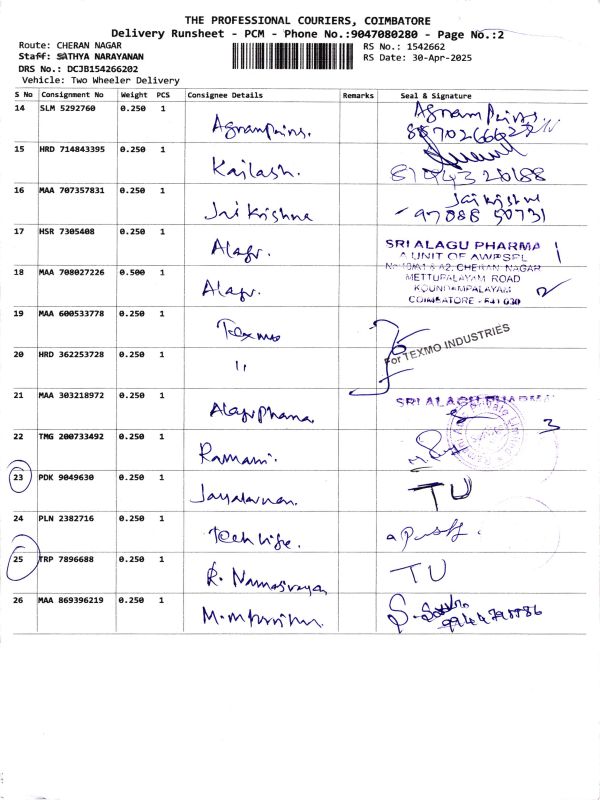 THE PROFESSIONAL COURIERS, COIMBATORE
Delivery Runsheet - PCM - Phone No.:9047080280 - Page No.:2
Route: CHERAN NAGAR
RS No.: 1542662
Staff: SATHYA NARAYANAN
RS Date: 30-Apr-2025
DRS No.: DCJB154266202
Vehicle: Two Wheeler Delivery
S No Consignment No Weight PCS Consignee Details Remarks Seal & Signature
14 SLM 5292760 0.250 1
15 HRD 714843395 0.250 1 Kailash.
16 MAA 707357831 0.250 1 Jai Krishna Jai Krishna
97088 50731
17 HSR 7305408 0.250 1 Alagr. SRI ALAGU PHARMA 1
A UNIT OF AWPSPL
CHERAN NAGAR
METTUPALAYAM ROAD
18 MAA 708027226 0.500 1 Alagr. KOUNDAMPALAYAM 2
COIMBATORE - 641 030
19 MAA 600533778 0.250 1 Texmo
For TEXMO INDUSTRIES
20 HRD 362253728 0.250 1 "
21 MAA 303218972 0.250 1 Alagr Pharma SRI ALAGU PHARMA
3
22 TMG 200733492 0.250 1 Ramani.
23 PDK 9049630 0.250 1 TU
24 PLN 2382716 0.250 1 Tech life.
25 TRP 7896688 0.250 1 R. Namasivaya TU
26 MAA 869396219 0.250 1